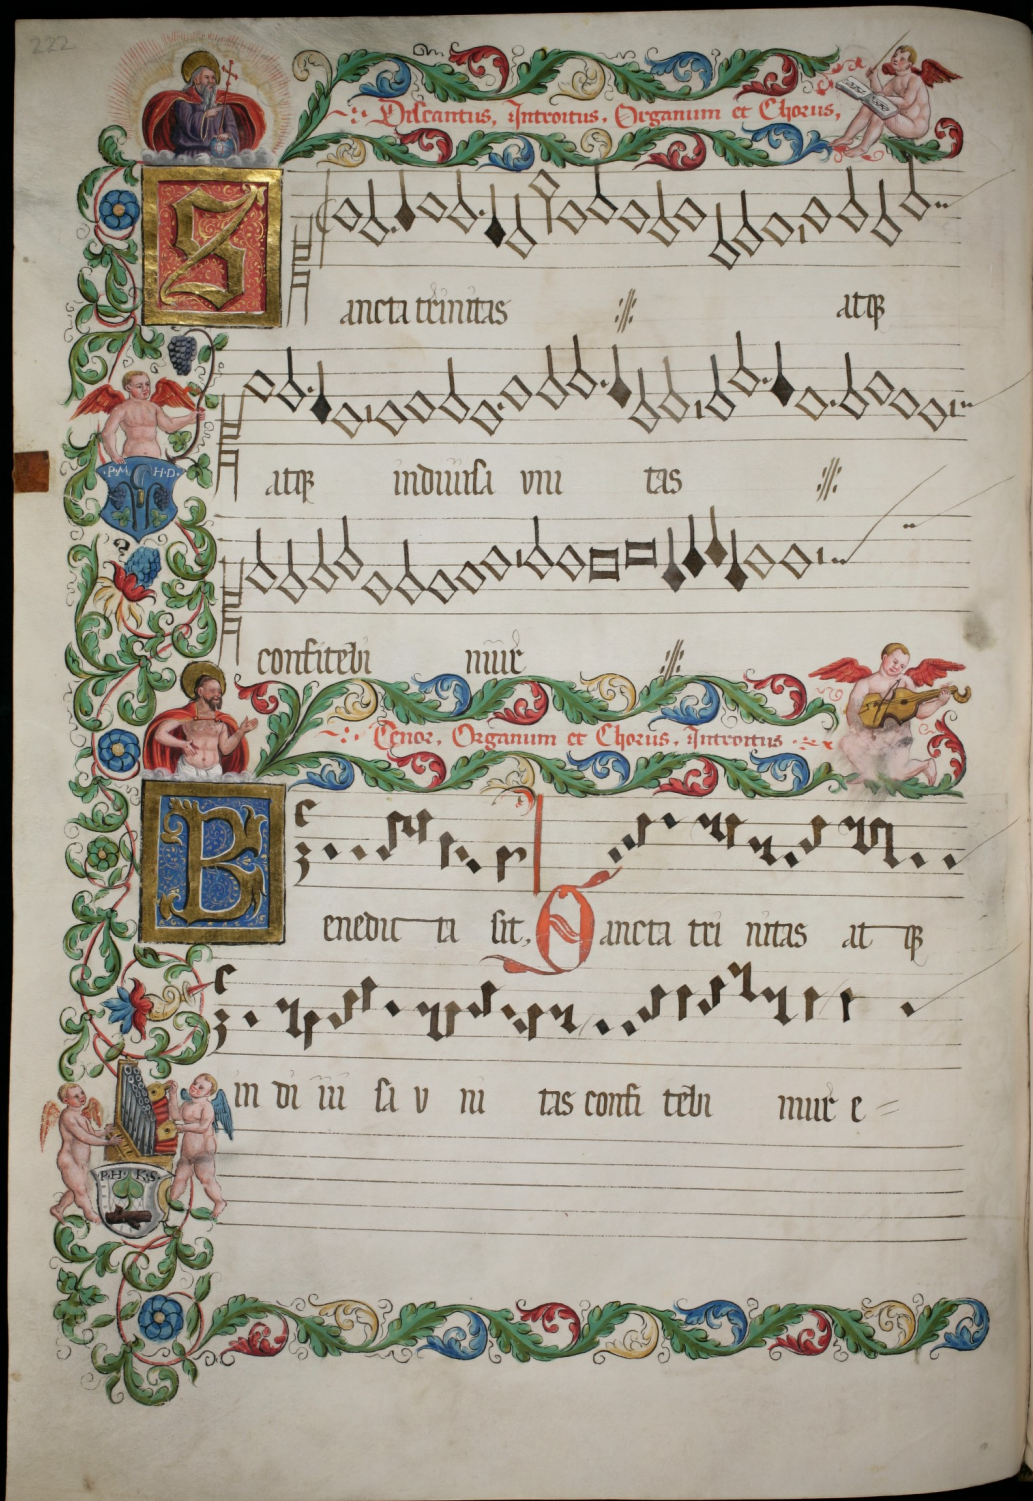 222
Discantus, Introitus, Organum et Chorus,
S
ancta trinitas atq̃
P M H D
atq̃ indiuisa vni tas
confitebi mur̃
Tenor, Organum et Chorus, Introitus
B
enedic ta sit, Sancta tri nitas at q̃
in di ui sa v ni tas confi tebi mur̃ e
P H K S